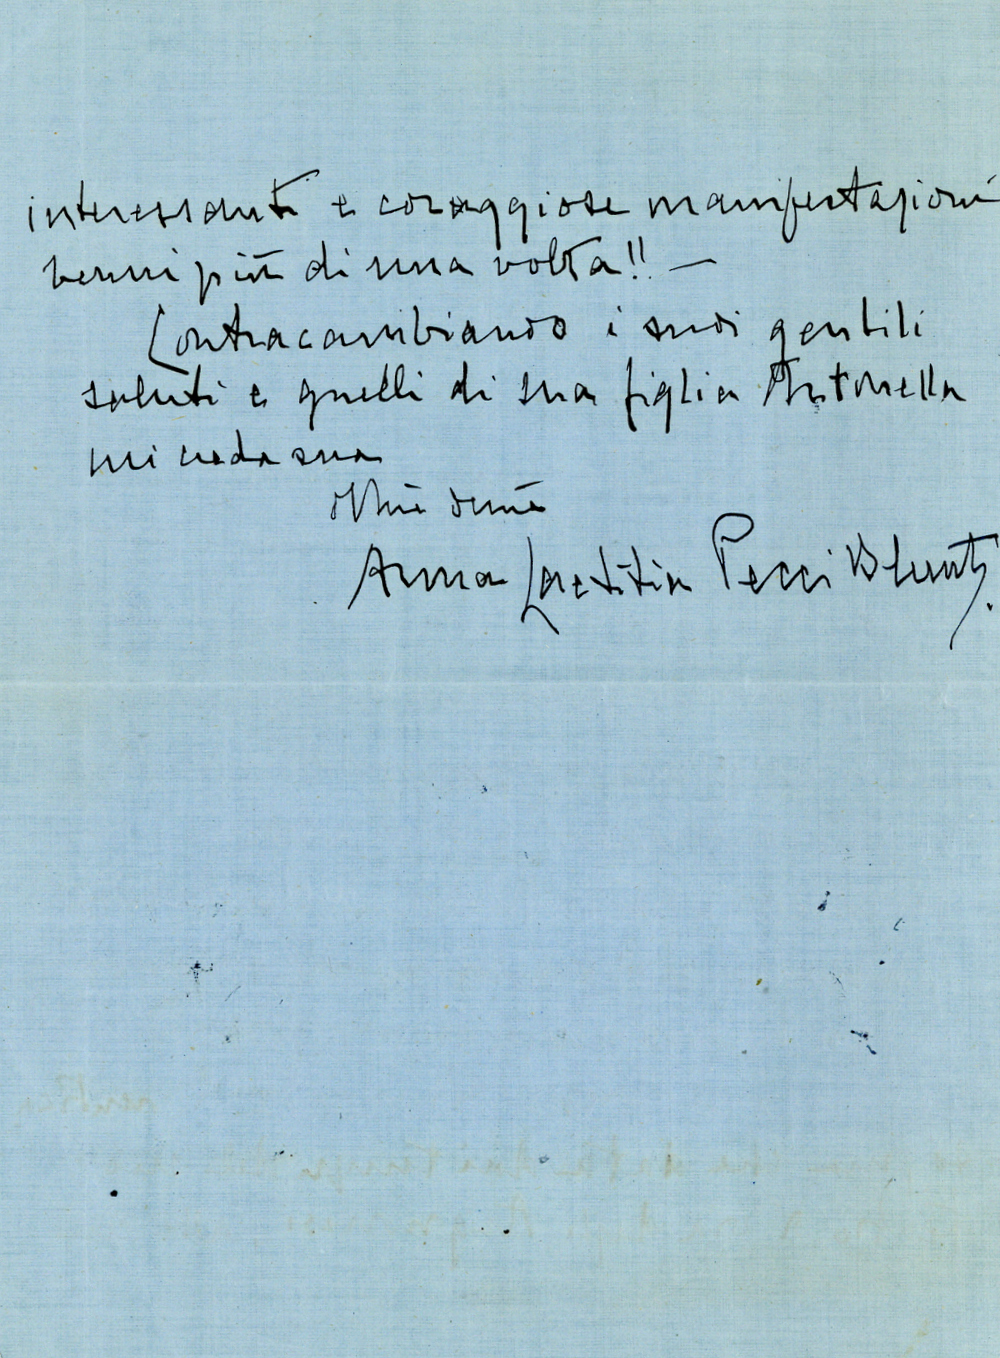 interessanti e coraggiose manifestazioni
venni più di una volta!! —
Contraccambiando i suoi gentili
saluti e quelli di sua figlia Antonella
mi creda sua
Anna Laetitia Pecci Blunt.